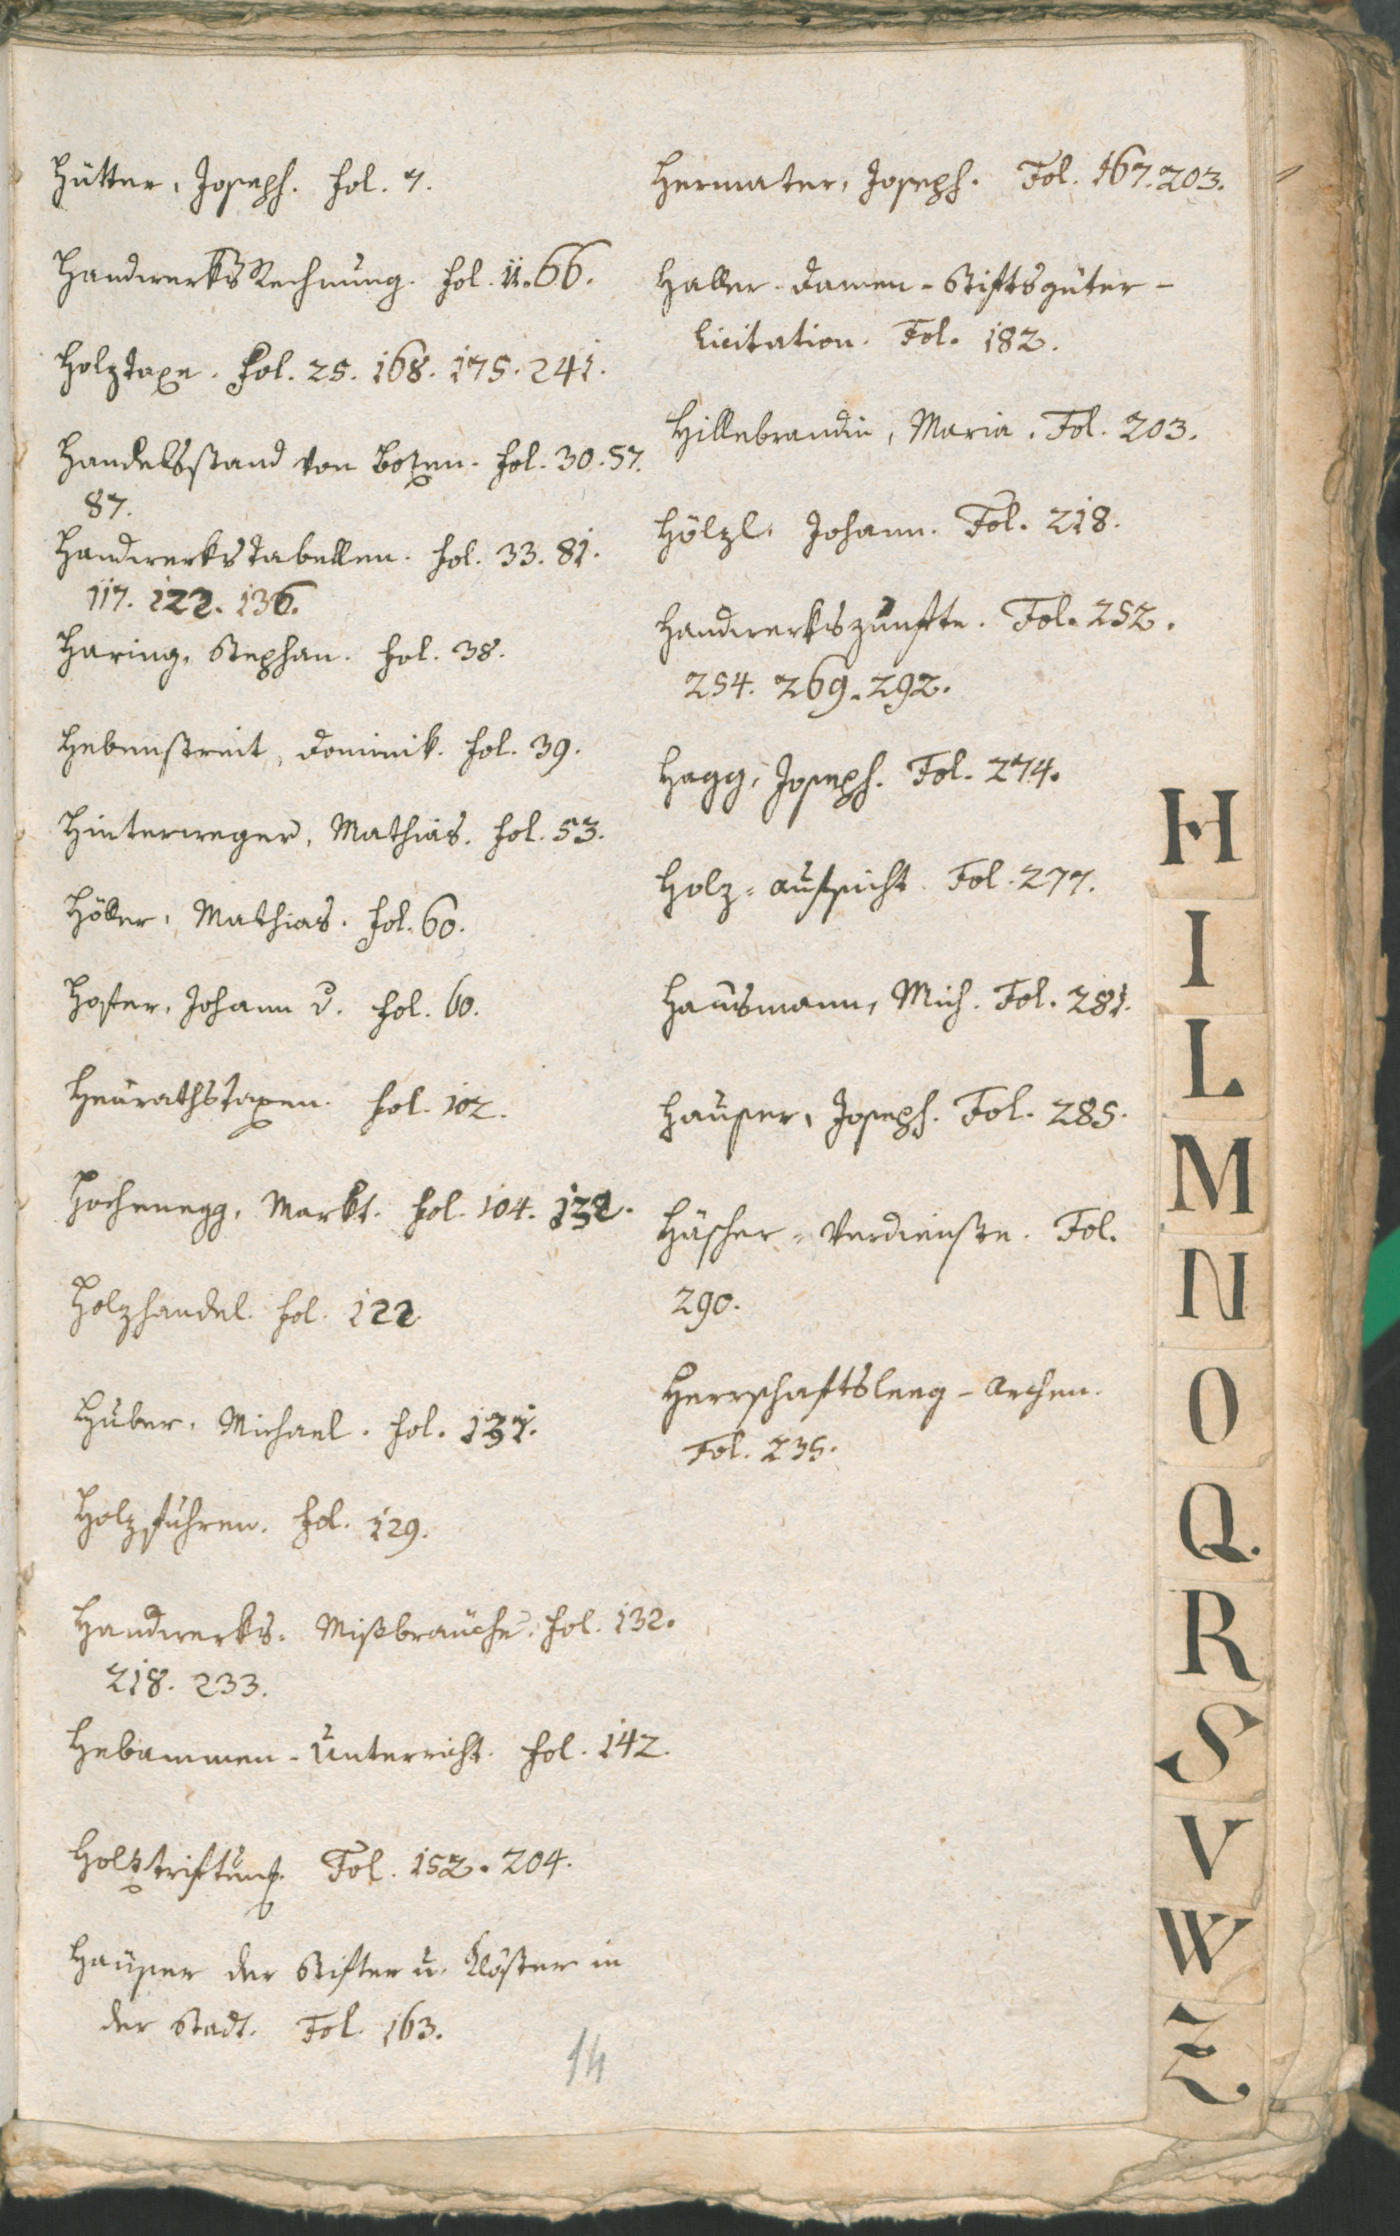 Hütter, Joseph. fol. 7.
Handwerks Rechnung. fol. 11. 66.
Holztaxe. fol. 25. 168. 175. 241.
Handelsstand von Bozen. fol. 30. 57.
87.
Handwerkstabellen. fol. 33. 81.
117. 122. 136.
Haring, Stephan. fol. 38.
Hebenstreit, Dominik. fol. 39.
Hinterweger, Mathias. fol. 53.
Höller, Mathias. fol. 60.
Hofer, Johann v. fol. 60.
Heurathstaxen. fol. 102.
Hochenegg, Markt. fol. 104. 132.
Holzhandel. fol. 122.
Huber, Michael. fol. 131.
Holzfuhren. fol. 129.
Handwerks-Mißbrauche. fol. 132.
218. 233.
Hebammen-Unterricht. fol. 142.
Holztriftung. Fol. 152. 204.
Häuser der Stifter u. Klöster in
der Stadt. Fol. 163.
14
Hermater, Joseph. Fol. 167. 203.
Haller-Damen-Stiftsgüter-
licitation. Fol. 182.
Hillebrandin, Maria. Fol. 203.
Hölzl, Johann. Fol. 218.
Handwerkszunfte. Fol. 252.
254. 269. 292.
Hagg, Joseph. Fol. 274.
Holz-aufsicht. Fol. 277.
Hausmann, Mich. Fol. 281.
Hauser, Joseph. Fol. 285.
Häscher-Verdienste. Fol.
290.
Herrschaftsleeg-Archen.
Fol. 235.
H
I
L
M
N
O
Q.
R
S
V
W
Z.